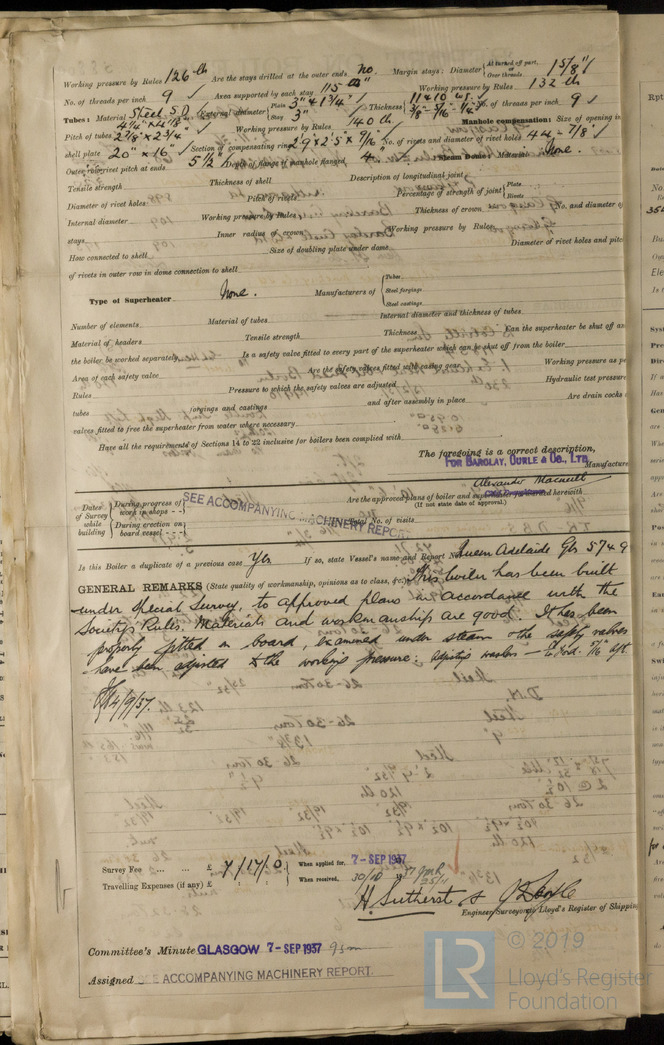 Working pressure by Rules 126 lb Are the stays drilled at the outer ends No. Margin stays: Diameter { At turned off part, or Over threads 1 5/8"
No. of threads per inch 9 Area supported by each stay 115 Working pressure by Rules 132 lb
Tubes: Material Steel S.D. External diameter { Plain 3" Stay 3" Thickness { No. of threads per inch 9
Pitch of tubes Working pressure by Rules 140 lb Manhole compensation: Size of opening in
shell plate 20" x 16" Section of compensating ring No. of rivets and diameter of rivet holes 44 - 7/8"
Outer row rivet pitch at ends 5 1/2" Depth of flange if manhole flanged 4 Steam Dome: Material None.
Tensile strength Thickness of shell Description of longitudinal joint
Diameter of rivet holes Pitch of rivets Percentage of strength of joint { Plate Rivets
Internal diameter Working pressure by Rules Thickness of crown No. and diameter of
stays Inner radius of crown Working pressure by Rules
How connected to shell Size of doubling plate under dome Diameter of rivet holes and pitch
of rivets in outer row in dome connection to shell
Type of Superheater None. Manufacturers of { Tubes Steel forgings Steel castings
Number of elements Material of tubes Internal diameter and thickness of tubes
Material of headers Tensile strength Thickness Can the superheater be shut off an
the boiler be worked separately Is a safety valve fitted to every part of the superheater which can be shut off from the boiler
Area of each safety valve Are the safety valves fitted with easing gear Working pressure as pe
Rules Pressure to which the safety valves are adjusted Hydraulic test pressure
tubes forgings and castings and after assembly in place Are drain cocks
valves fitted to free the superheater from water where necessary
Have all the requirements of Sections 14 to 22 inclusive for boilers been complied with
The foregoing is a correct description,
FOR BARCLAY, CURLE & CO., LTD. Manufacture
Alexander
Dates of Survey while building { During progress of work in shops - - Are the approved plans of boiler and superheater forwarded herewith
(If not state date of approval.)
SEE ACCOMPANYING MACHINERY REPORT
During erection on board vessel - - - Total No. of visits
Is this Boiler a duplicate of a previous case Yes If so, state Vessel's name and Report No. Queen Adelaide Gls 5749
GENERAL REMARKS (State quality of workmanship, opinions as to class, &c.) This boiler has been built
under Special Survey, to approved plans in accordance with the
Society's Rules. Materials and workmanship are good. It has been
properly fitted on board, examined under steam & the safety valves
have been adjusted to the working pressure: adjusting washers —
4/9/37.
Survey Fee ... ... £ 7/17/0 When applied for, 7-SEP 1937
Travelling Expenses (if any) £ : : When received, 30/10
H. Sutherst &
Engineer Surveyor to Lloyd's Register of Shipping
Committee's Minute GLASGOW 7-SEP 1937
Assigned SEE ACCOMPANYING MACHINERY REPORT.
LR © 2019
Lloyd's Register
Foundation